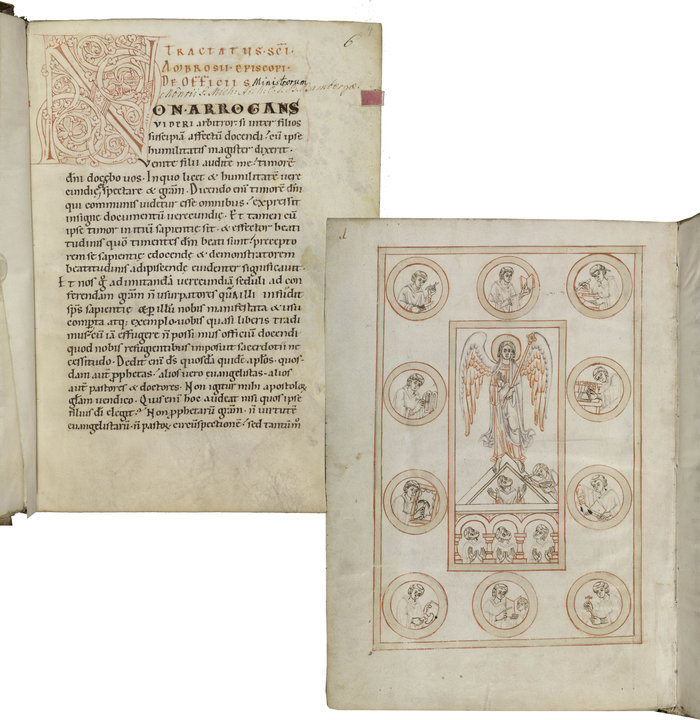 6
TRACTATUS · SCI ·
AMBROSII · EPISCOPI ·
DE OFFICIIS Ministrorum
NON · ARROGANS
VIDERI arbitror · si inter filios
suscipiā affectū docendi · cū ipse
humilitatis magister dixerit ·
Venite filii audite me · timorē
dn̄i docebo vos · In quo licet & humilitatē vere
cundiȩ spectare & grām · Dicendo enī timorē dn̄i
qui communis videtur esse omnibus · expressit
insigne documentū verecundiȩ · Et tamen cū
ipse timor initiū sapientiȩ sit · & effector beati
tudinis quō timentes dm̄ beati sunt · precepto
rem se sapientiȩ edocendȩ & demonstratorem
beatitudinis adipiscendȩ evidenter significavit ·
Et nos g adimitandā verecundiā seduli ad con
ferendam grām n̄ usurpatores quȩ illi infudit
sps̄ sapientiȩ & p illū nobis manifestata & visu
comperta atq exemplo · nobis quasi liberis tradi
mus · cū iā effugere n̄ possimus officiū docendi
quod nobis refugientibus imposuit sacerdotii ne
cessitudo · Dedit enī ds̄ quosdā quidē aplōs · quos-
dam aut prophetas · alios vero evangelistas · alios
aut pastores & doctores · Non igitur mihi apostolorū
glām vendico · Quis enī hoc audeat nisi quos ipse
filius di elegit · Non prophetarū grām · n̄ virtutē
evangelistarū · n̄ pastorū circūspectionē · sed tantūm
1